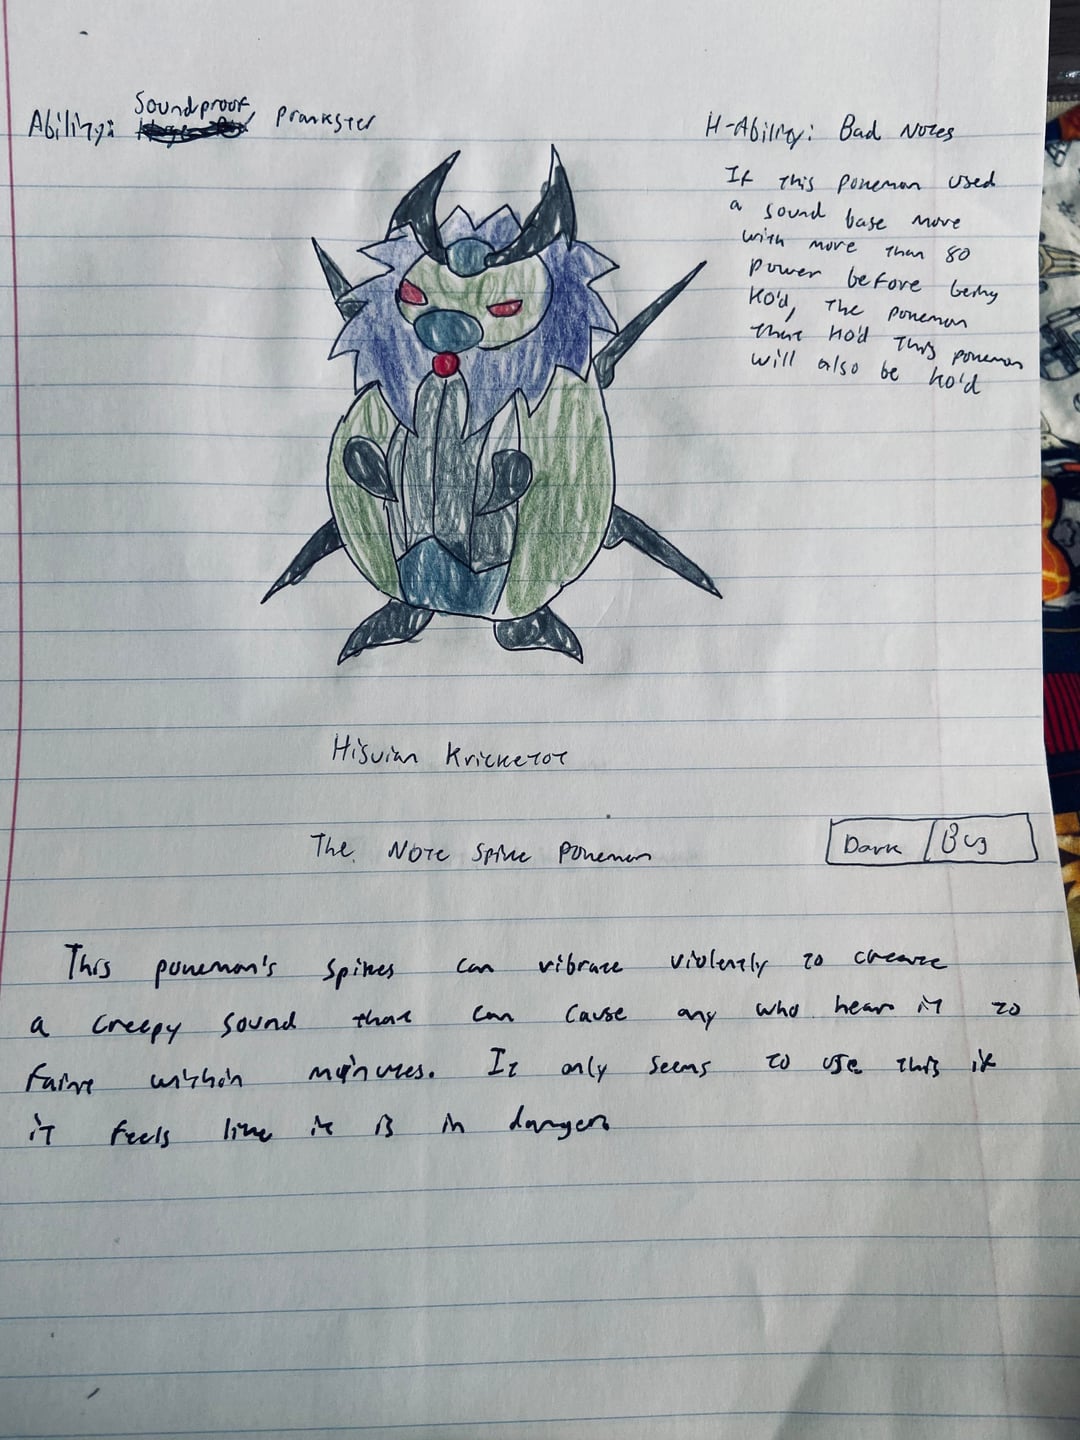 Soundproof
Ability: Prankster
H-Ability: Bad Notes
If this pokemon used
a sound base move
with more than 80
power before being
KO'd, the pokemon
that KO'd this pokemon
will also be KO'd
Hisuian Kricketot
The Note Spike Pokemon
Dark / Bug
This pokemon's spikes can vibrate violently to create
a creepy sound that can cause any who hear it to
faint within minutes. It only seems to use this if
it feels like it is in danger